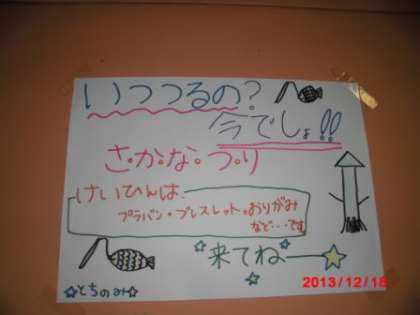 いつつるの？
今でしょ!!
さ・か・な・つ・り
けいひんは、
プラバン・ブレスレット・おりがみ
など…です
☆来てね―☆
☆とちのみ☆
2013/12/18